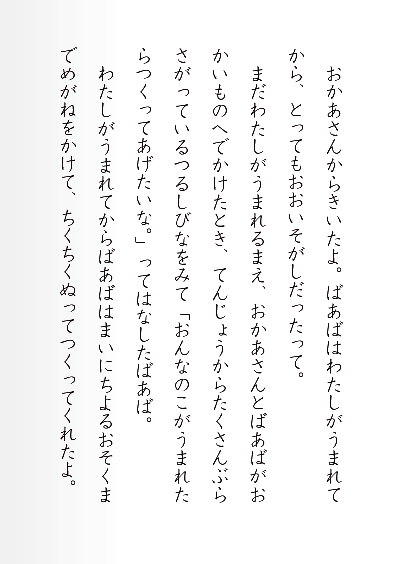 おかあさんからきいたよ。ばあばはわたしがうまれて
から、とってもおおいそがしだったって。
まだわたしがうまれるまえ、おかあさんとばあばがお
かいものへでかけたとき、てんじょうからたくさんぶら
さがっているつるしびなをみて「おんなのこがうまれた
らつくってあげたいな。」ってはなしたばあば。
わたしがうまれてからばあばはまいにちよるおそくま
でめがねをかけて、ちくちくぬってつくってくれたよ。